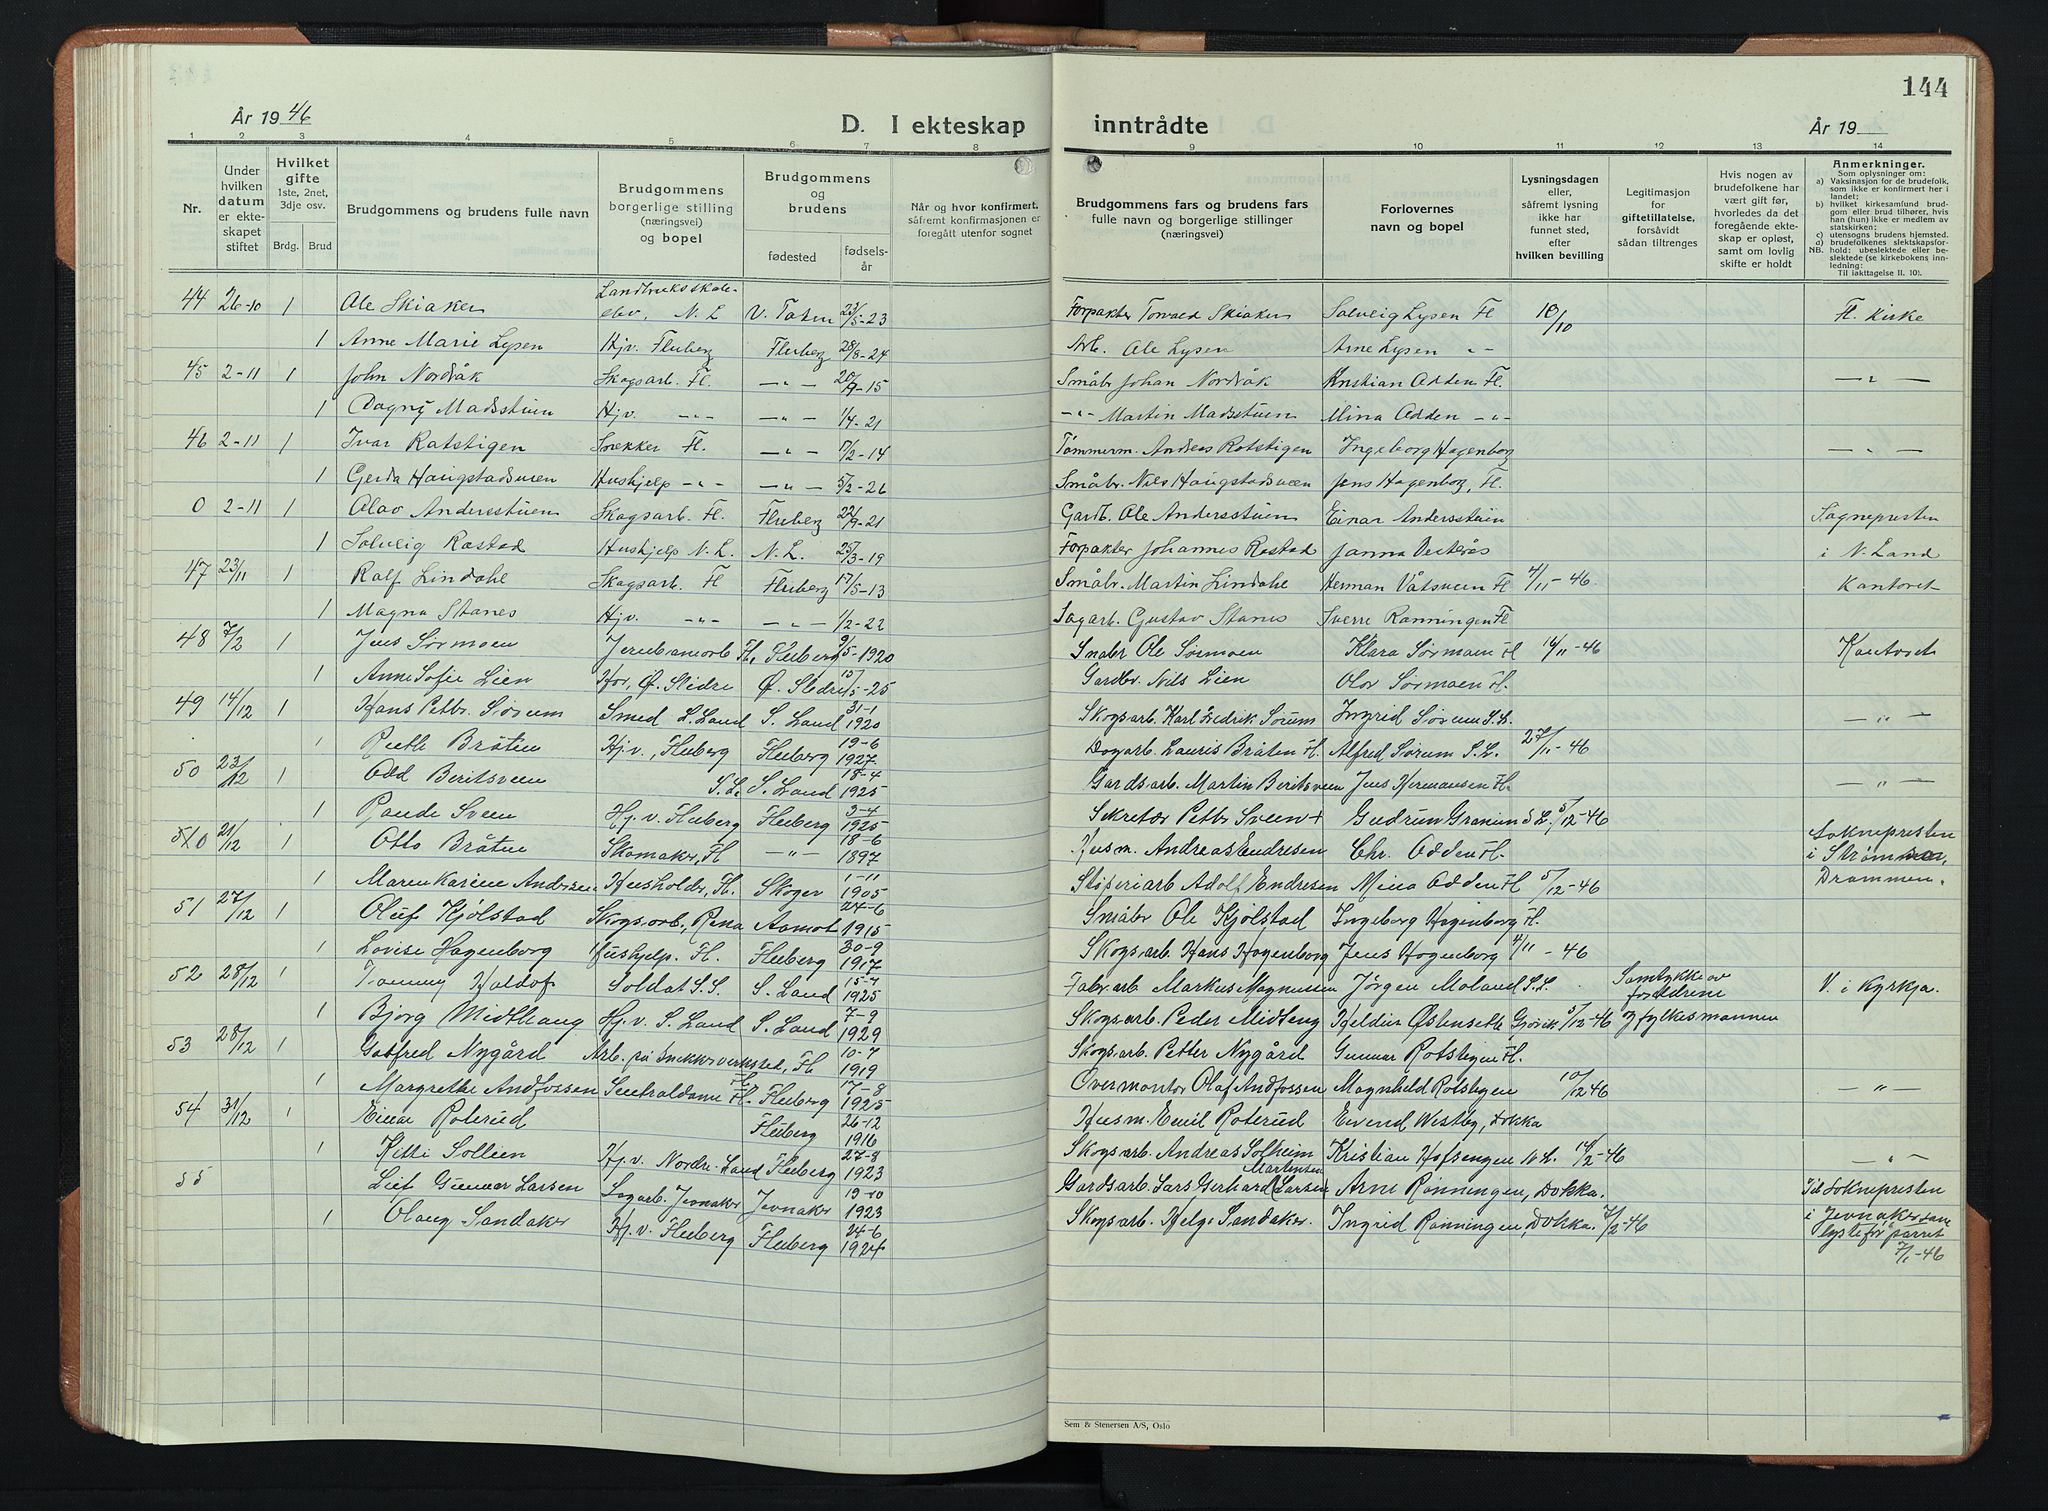 144
År 1946
D. I ekteskap
inntrådte
År 19
1 2 3 4 5 6 7 8 9 10 11 12 13 14
Nr.
Under hvilken datum er ekteskapet stiftet
Hvilket gifte 1ste, 2net, 3dje osv.
Brdg. Brud
Brudgommens og brudens fulle navn
Brudgommens borgerlige stilling (næringsvei) og bopel
Brudgommens og brudens
fødested
fødselsår
Når og hvor konfirmert, såfremt konfirmasjonen er foregått utenfor sognet
Brudgommens fars og brudens fars fulle navn og borgerlige stillinger (næringsvei)
Forlovernes navn og bopel
Lysningsdagen eller, såfremt lysning ikke har funnet sted, efter hvilken bevilling
Legitimasjon for giftetillatelse, forsåvidt sådan tiltrenges
Hvis nogen av brudefolkene har vært gift før, hvorledes da det foregående ekteskap er opløst, samt om lovlig skifte er holdt
Anmerkninger.
Som oplysninger om:
a) Vaksinasjon for de brudefolk, som ikke er konfirmert her i landet;
b) hvilket kirkesamfund brudgom eller brud tilhører, hvis han (hun) ikke er medlem av statskirken;
c) utensogns brudens hjemsted.
d) brudefolkenes slektskapsforhold: ubeslektede eller beslektede (se kirkebokens innledning:
NB.
Til iakttagelse II. 10).
44 26-10 1 Ole Skiaker Landbruksskoleelev, N. L. V. Toten 23/5-23 Forpakter Torvald Skiaker Solveig Lysen Fl 10/10 Fl. Kirke
1 Anne Marie Lysen Hjv. Fluberg Fluberg 28/8-24 Arb. Ole Lysen Arne Lysen -"-
45 2-11 1 John Nordvåk Skogsarb. Fl. -"- 20/9-15 Småbr Johan Nordråk Kristian Odden Fl. -"-
1 Dagny Madsstuen Hjv. -"- -"- 1/4-21 -"- Martin Madsstuen Mina Odden -"-
46 2-11 1 Ivar Rotstigen Snekker Fl. -"- 17/2-14 Tømmerm. Andreas Rotstigen Ingeborg Hagenborg -"-
1 Gerda Haugstadsveen Hushjelp -"- -"- 5/2-26 Småbr. Nils Haugstadsveen Jens Hagenborg, Fl.
0 2-11 1 Olav Andersstuen Skogsarb. Fl. Fluberg 22/9-21 Gardb. Ole Andersstuen Einar Andersstuen Sognepresten
1 Solveig Rostad Hushjelp N. L. N. L. 25/3-19 Forpakter Johannes Rostad Janna Vesterås i N. Land
47 23/11 1 Ralf Lindahl Skogsarb. Fl Fluberg 17/5-13 Småbr. Martin Lindahl Herman Våtsveen Fl 4/11-46. Kontoret
1 Magna Stanes Hjv. -"- -"- 1/2-22 Sagarb. Gustav Stanes Sverre Rønningen Fl
48 7/2 1 Jens Sørmoen Jernbanearb Fl. Fluberg 9/5-1920 Småbr Ole Sørmoen Klara Sørmoen Fl 16/11-46 Kontoret
1 Anne Sofie Lien Hjv, Ø. Slidre Ø. Slidre 15/5-25 Gardbr. Nils Lien Olov Sørmoen Fl.
49 14/12 1 Hans Petter Sørum Smed S. Land S. Land 31-1 1920 Skogsarb. Karl Fredrik Sørum Ingrid Sørum S. L. -"-
1 Ruth Bråten Hj.v., Fluberg Fluberg 19-6 1927 Dagarb. Lauris Bråten Fl. Alfred Sørum S. L. 27/11-46
50 23/12 1 Odd Beritsveen S. L. S. Land 18-4 1925 Gardsarb. Martin Beritsveen Jens Hermansen Fl. -"-
1 Sveen Hj. v. Fluberg Fluberg 3-4 1925 Sekretær Petter Sveen + Gudrun Granum S L. 5/12-46
0 21/12 1 Otto Bråten Skomaker, Fl -"- 18-6 1897 Husm. Andreas Endresen Chr. Odden Fl. Soknepresten i Strøm
1 Maren Karine Andersen Husholdr, Fl. Skoger 1-11 1905 Støperiarb Adolf Endresen Mina Odden Fl 5/12-46 Drammen.
51 27/12 1 Oluf Kjølstad Skogsarb., Rena Aamot 24-6 1915 Småbr Ole Kjølstad Ingeborg Hagenborg Fl.
1 Lovise Hagenborg Hushjelp. Fl. Fluberg 30-9 1917 Skogsarb. Hans Hagenborg Jens Hagenborg 4/11-46
52 28/12 1 Tommy Haldof Soldat S. S. S. Land 15-7 1925 Fabr.arb Markus Magnussen Jørgen Moland S. L. Samtykke av foreldrene V. i Kyrkja.
1 Bjørg Midthaug Hj. v. S. Land S. Land 7-9 1929 Skogsarb. Peder Midteng Østenseth Gjøvik 5/12-46 fylkesmannen
53 28/12 1 Gotfred Nygård Arb. på snekkerverksted, Fl 10-7 1919 Skogsarb. Petter Nygård Gunnar Rotstigen Fl.
1 Margrethe Andfossen Sentraldame Fl. Fluberg 17-8 1925 Overmontør Olaf Andfossen Magnhild Rotstigen 10/12 46 -"-
54 31/12 1 Einar Roterud Fluberg 26-12 1916 Husm. Emil Roterud Eivend Westby, Dokka
1 Kitti Sollien Hj.v. Nordre-Land Fluberg 27-8 1923 Skogsarb. Andreas Solheim Kristian Hofsengen N. L. 14/2-46 -"-
55 Leif Gunnar Larsen Sagarb. Jevnaker Jevnaker 19-10 1923 Gardsarb. Lars Gerhard Martinsen Larsen Arne Rønningen, Dokka. Til Soknepresten
1 Olaug Sandaker Hj. v. Fluberg Fluberg 24-6 1924 Skogsarb. Helge Sandaker. Ingrid Rønningen, Dokka. 7/2-46 i Jevnaker som lyste for parret 7/1-46
Sem & Stenersen A/S, Oslo